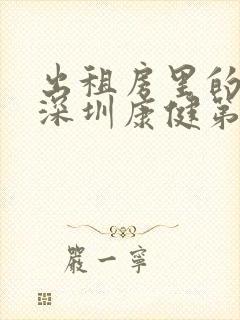 出租房里的
深圳康健第
严一宁